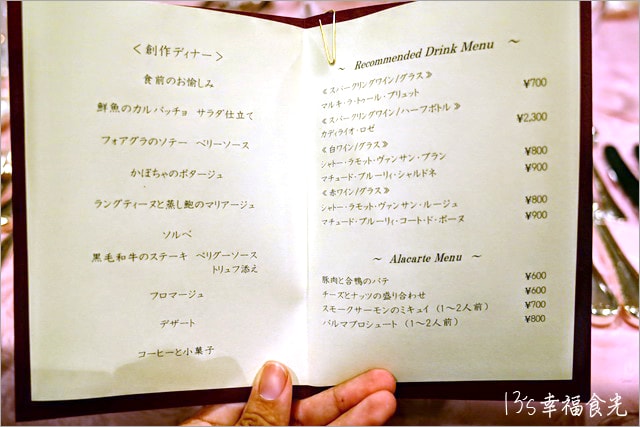 ＜創作ディナー＞
食前のお愉しみ
鮮魚のカルパッチョ サラダ仕立て
フォアグラのソテー ベリーソース
かぼちゃのポタージュ
ラングティーヌと蒸し鮑のマリアージュ
ソルベ
黒毛和牛のステーキ ペリグーソース
トリュフ添え
フロマージュ
デザート
コーヒーと小菓子
～ Recommended Drink Menu ～
≪スパークリングワイン/グラス≫
マルキ・ラ・トゥール・ブリュット ¥700
≪スパークリングワイン/ハーフボトル≫
カディライオ・ロゼ ¥2,300
≪白ワイン/グラス≫
シャトー・ラモット・ヴァンサン・ブラン ¥800
マチュード・ブルーリィ・シャルドネ ¥900
≪赤ワイン/グラス≫
シャトー・ラモット・ヴァンサン・ルージュ ¥800
マチュード・ブルーリィ・コート・ド・ボーヌ ¥900
～ Alacarte Menu ～
豚肉と合鴨のパテ ¥600
チーズとナッツの盛り合わせ ¥600
スモークサーモンのミキュイ（1～2人前） ¥700
パルマプロシュート（1～2人前） ¥800
13's幸福食光